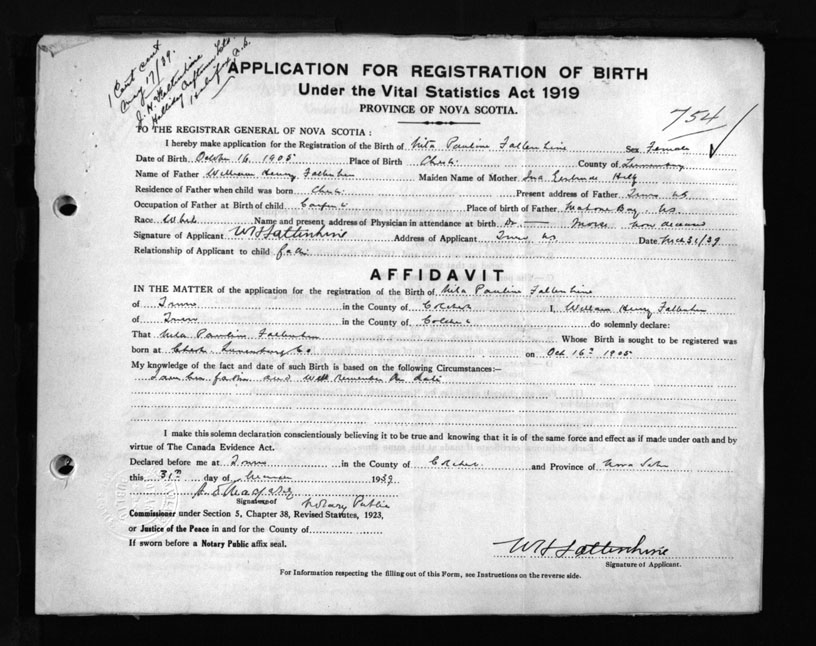 1 Cert sent
Aug 17/39.
J. H. Fattenhine
Halifax N.S.
APPLICATION FOR REGISTRATION OF BIRTH
Under the Vital Statistics Act 1919
PROVINCE OF NOVA SCOTIA.
754
TO THE REGISTRAR GENERAL OF NOVA SCOTIA:
I hereby make application for the Registration of the Birth of Pauline Sex Female
Date of Birth October 16 1905 Place of Birth County of
Name of Father William Henry Maiden Name of Mother Gertrude
Residence of Father when child was born Present address of Father Truro NS
Occupation of Father at Birth of child Place of birth of Father Mahone Bay. NS
Race Name and present address of Physician in attendance at birth Dr — now deceased
Signature of Applicant WH Fattenhine Address of Applicant Truro NS Date 31/39
Relationship of Applicant to child
AFFIDAVIT
IN THE MATTER of the application for the registration of the Birth of Pauline
of Truro in the County of I, William Henry
of Truro in the County of do solemnly declare:
That Whose Birth is sought to be registered was
born at Lunenburg Co on Oct 16th 1905
My knowledge of the fact and date of such Birth is based on the following Circumstances:—
and well remember the date
I make this solemn declaration conscientiously believing it to be true and knowing that it is of the same force and effect as if made under oath and by
virtue of The Canada Evidence Act.
Declared before me at Truro in the County of and Province of Nova
this 31st day of 1939
Signature of Notary Public
Commissioner under Section 5, Chapter 38, Revised Statutes, 1923,
or Justice of the Peace in and for the County of
If sworn before a Notary Public affix seal.
WH Fattenhine
Signature of Applicant.
For Information respecting the filling out of this Form, see Instructions on the reverse side.